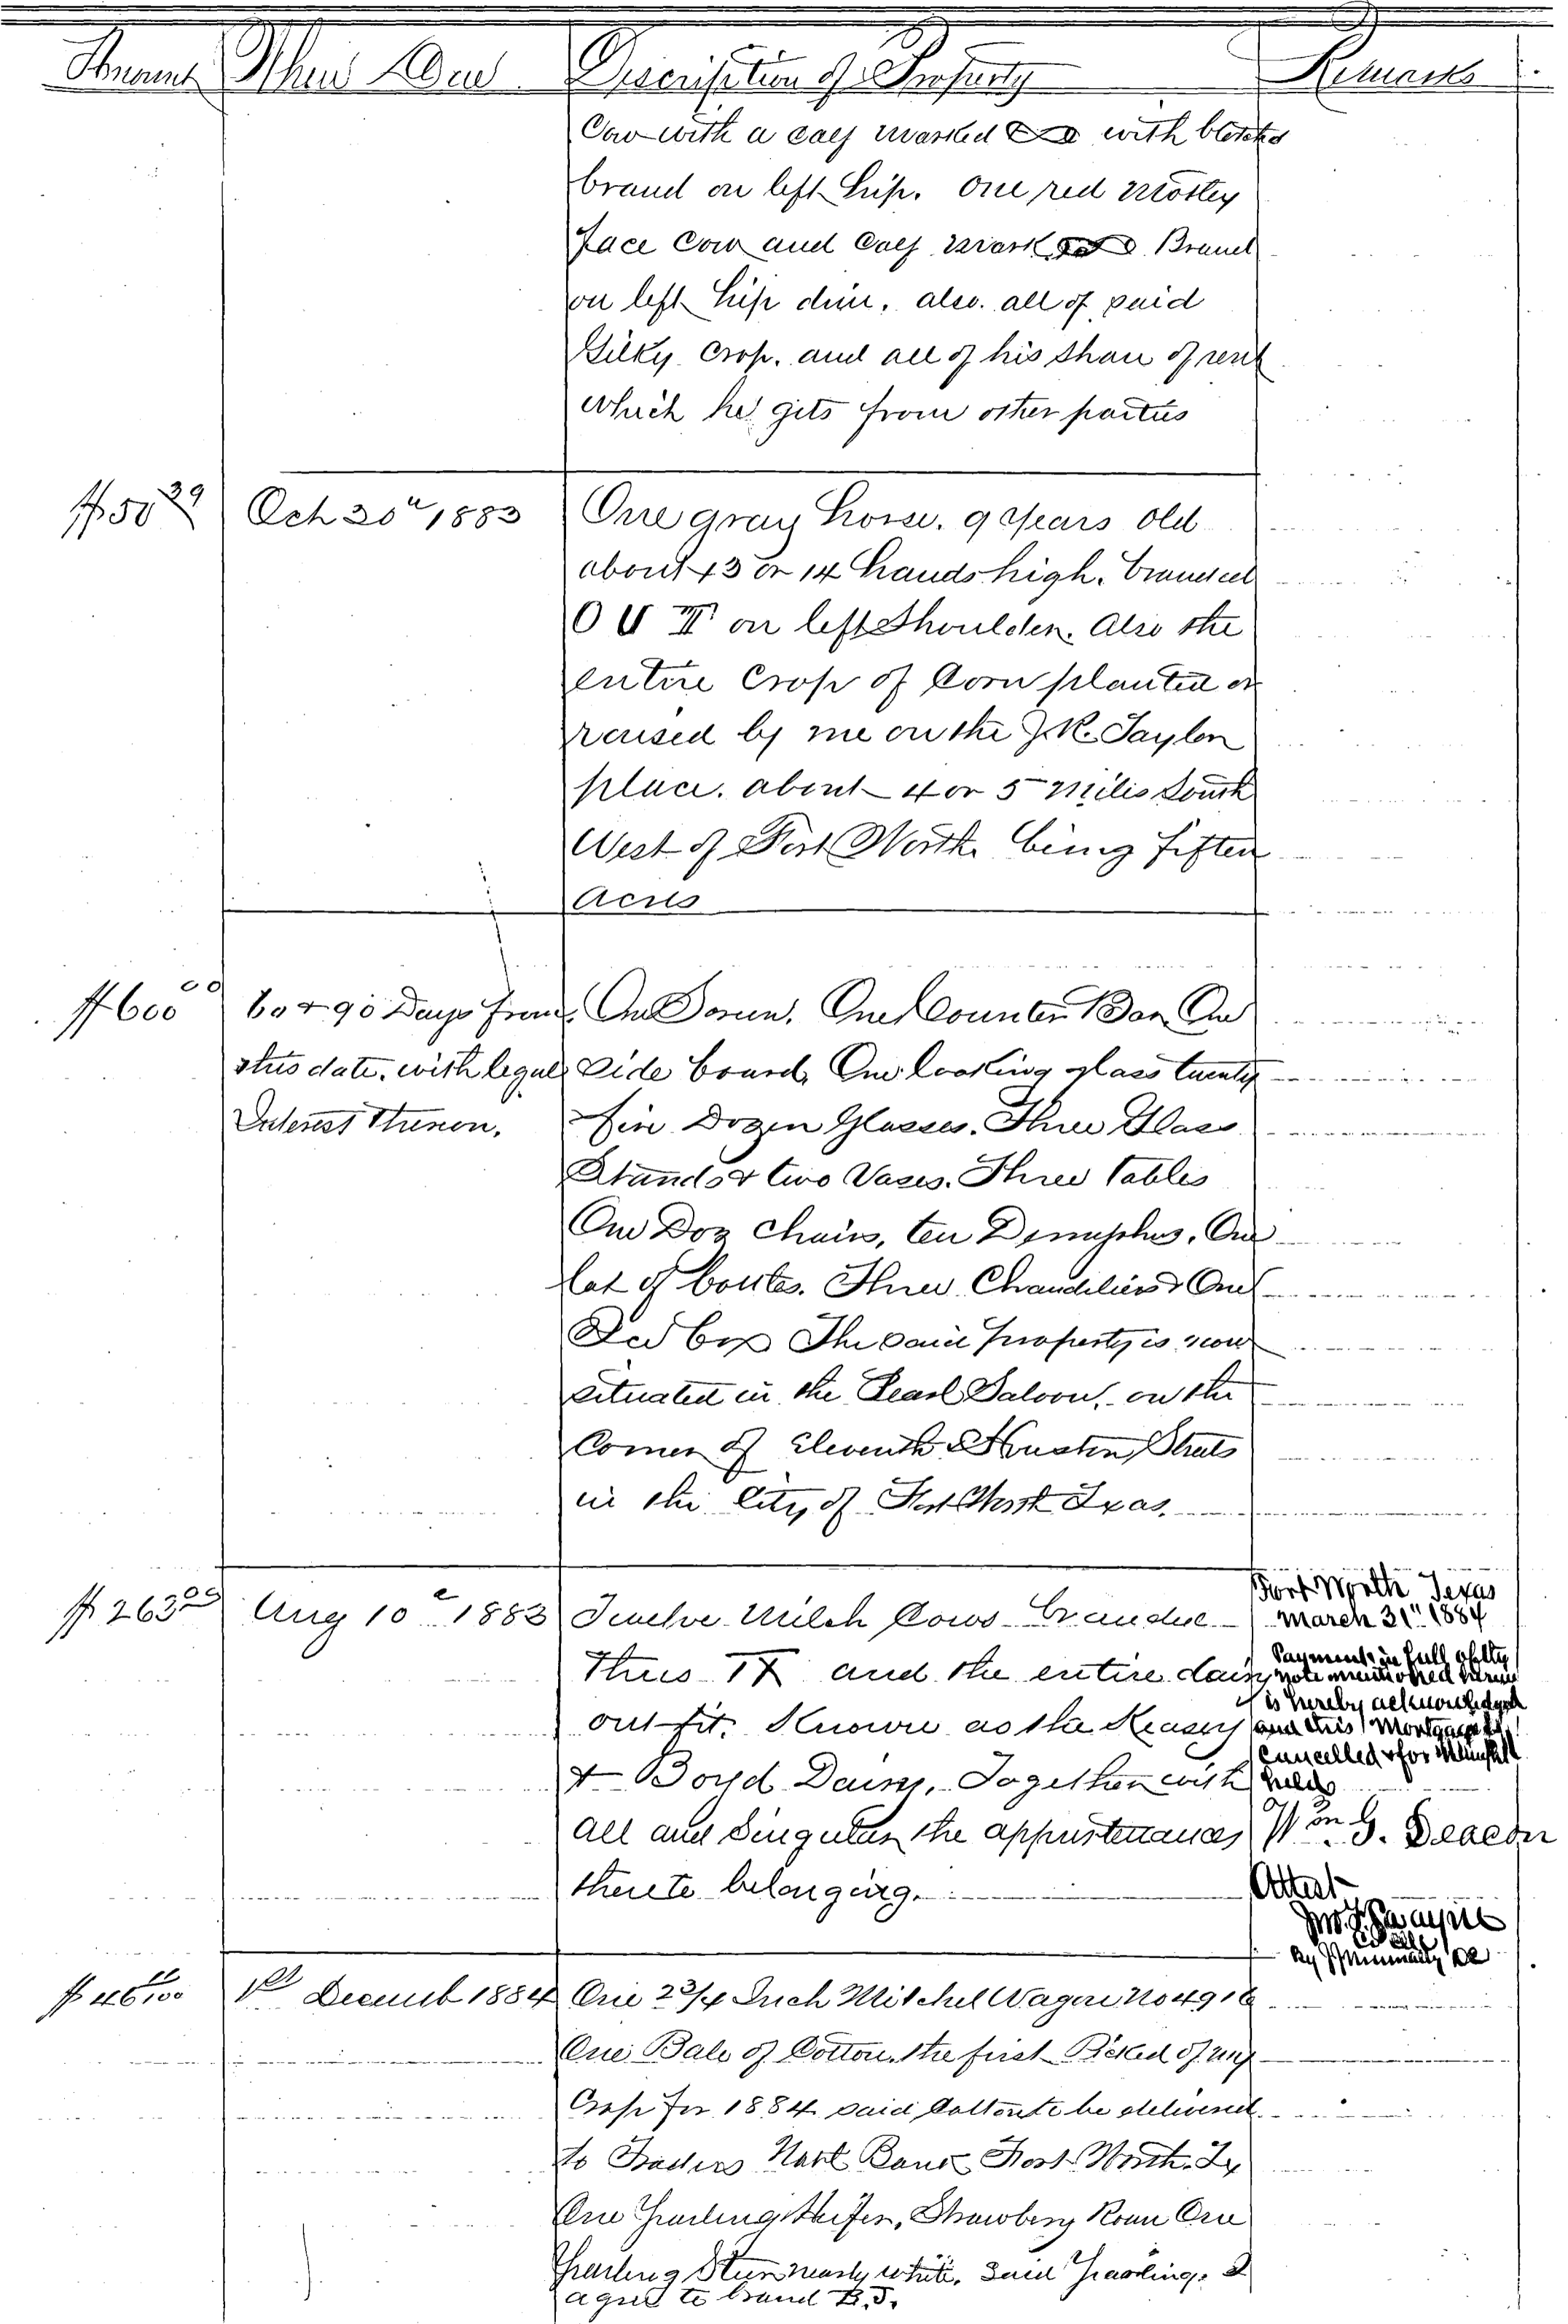 Amount When Due Description of Property Remarks
Cow with a calf marked with blotched
brand on left hip. One red Motley
face Cow and Calf Mark Brand
on left hip dim, also. all of said
Crop. and all of his share of rent
which he gets from other parties
$50 29 Oct 20th 1883 One gray horse. 9 years old
about 13 or 14 hands high. branded
O U III on left Shoulder. Also the
entire Crop of Corn planted or
raised by me on the J.K. Taylor
place. about 4 or 5 Miles South
West of Fort Worth being fifteen
Acres
$600 00 60 & 90 Days from One One Counter Bar One
this date. with legal Side board, One looking glass twenty
Interest thereon. five Dozen Glasses. Three Glass
Stands & two Vases. Three tables
One Doz Chairs, ten One
lot of bottles. Three Chandeliers & One
box The said property is now
situated in the Pearl Saloon, on the
Corner of Eleventh & Houston Streets
in the City of Fort Worth Texas.
$263 00 Aug 10th 1883 Twelve Milch Cows branded
thus TX and the entire dairy
out-fit. Known as the
& Boyd Dairy, Together with
all and Singular the appurtenances
thereto belonging.
Fort Worth Texas
March 31" 1884
Payment in full of the
note mentioned herein
is hereby acknowledged
and this Mortgage is
Cancelled & for
held
Wm G. Deacon
Attest
By
$46 /100 1st Decemb 1884 One 2 3/4 Inch Mitchel Wagon No 4916
One Bale of Cotton. the first Picked of my
Crop for 1884 said Cotton to be delivered
to Traders Natl Bank Fort Worth. Tx
One Yearling Heifer, Strawbery Roan One
Yearling Steer nearly white. Said Yearlings I
agree to brand B.T.